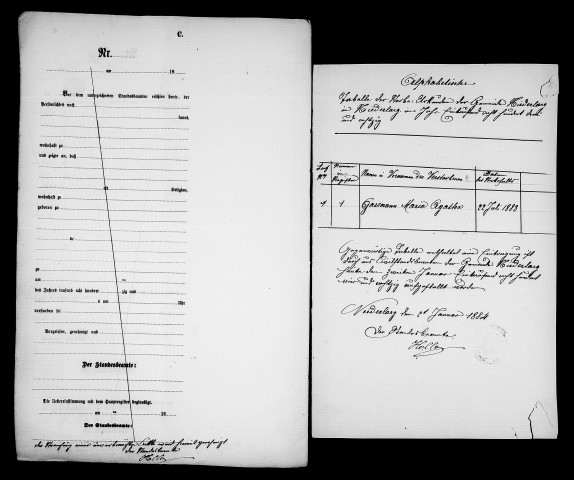 C.
Nr.
am 18
Vor dem unterzeichneten Standesbeamten erschien heute, der
Persönlichkeit nach
kannt,
wohnhaft zu
und zeigte an, daß
Religion,
wohnhaft zu
geboren zu
in
zu
am
des Jahres tausend acht hundert zig und
um Uhr
verstorben sei
Vorgelesen, genehmigt und
Der Standesbeamte:
Die Uebereinstimmung mit dem Hauptregister beglaubigt.
am 18
Der Standesbeamte:
Der Standesbeamte
Alphabetische
Tabelle der Sterbe-Urkunden der Gemeinde Niederlarg
in Niederlarg im Jahr Eintausend acht hundert drei
und achtzig
Name u. Vorname des Verstorbenen
Datum
des Sterbefalles
1 1 Gassmann Maria Agatha 22 Juli 1883
Gegenwärtige Tabelle enthaltend eine Eintragung ist
durch uns Civilstandsbeamten der Gemeinde Niederlarg
heute den zweiten Januar Eintausend acht hundert
vier und achtzig aufgestellt worden
Niederlarg den 2t Januar 1884
Der Standesbeamte